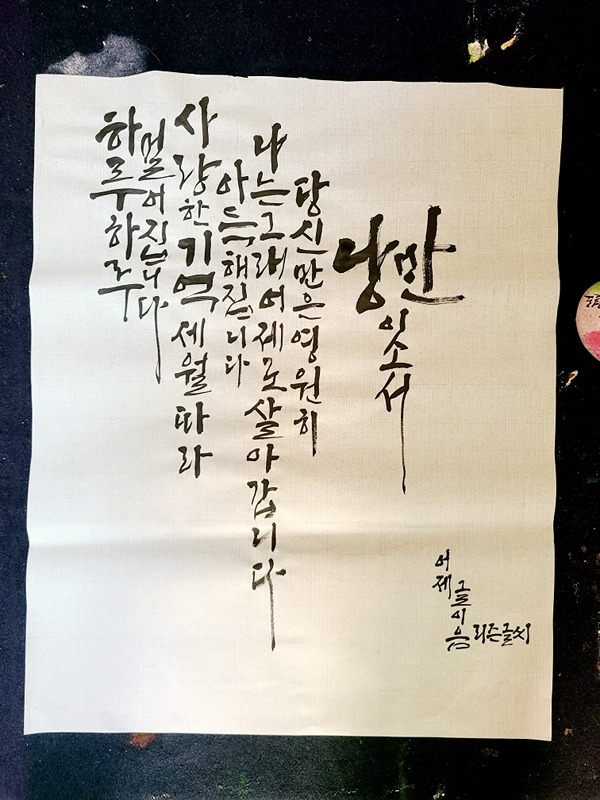 하루하루
멀어집니다
사랑한 기억 세월 따라
아득해집니다
나는 그래 어제도 살아갑니다
당신만은 영원히
낭만이소서
어제
글이음
리즌글씨